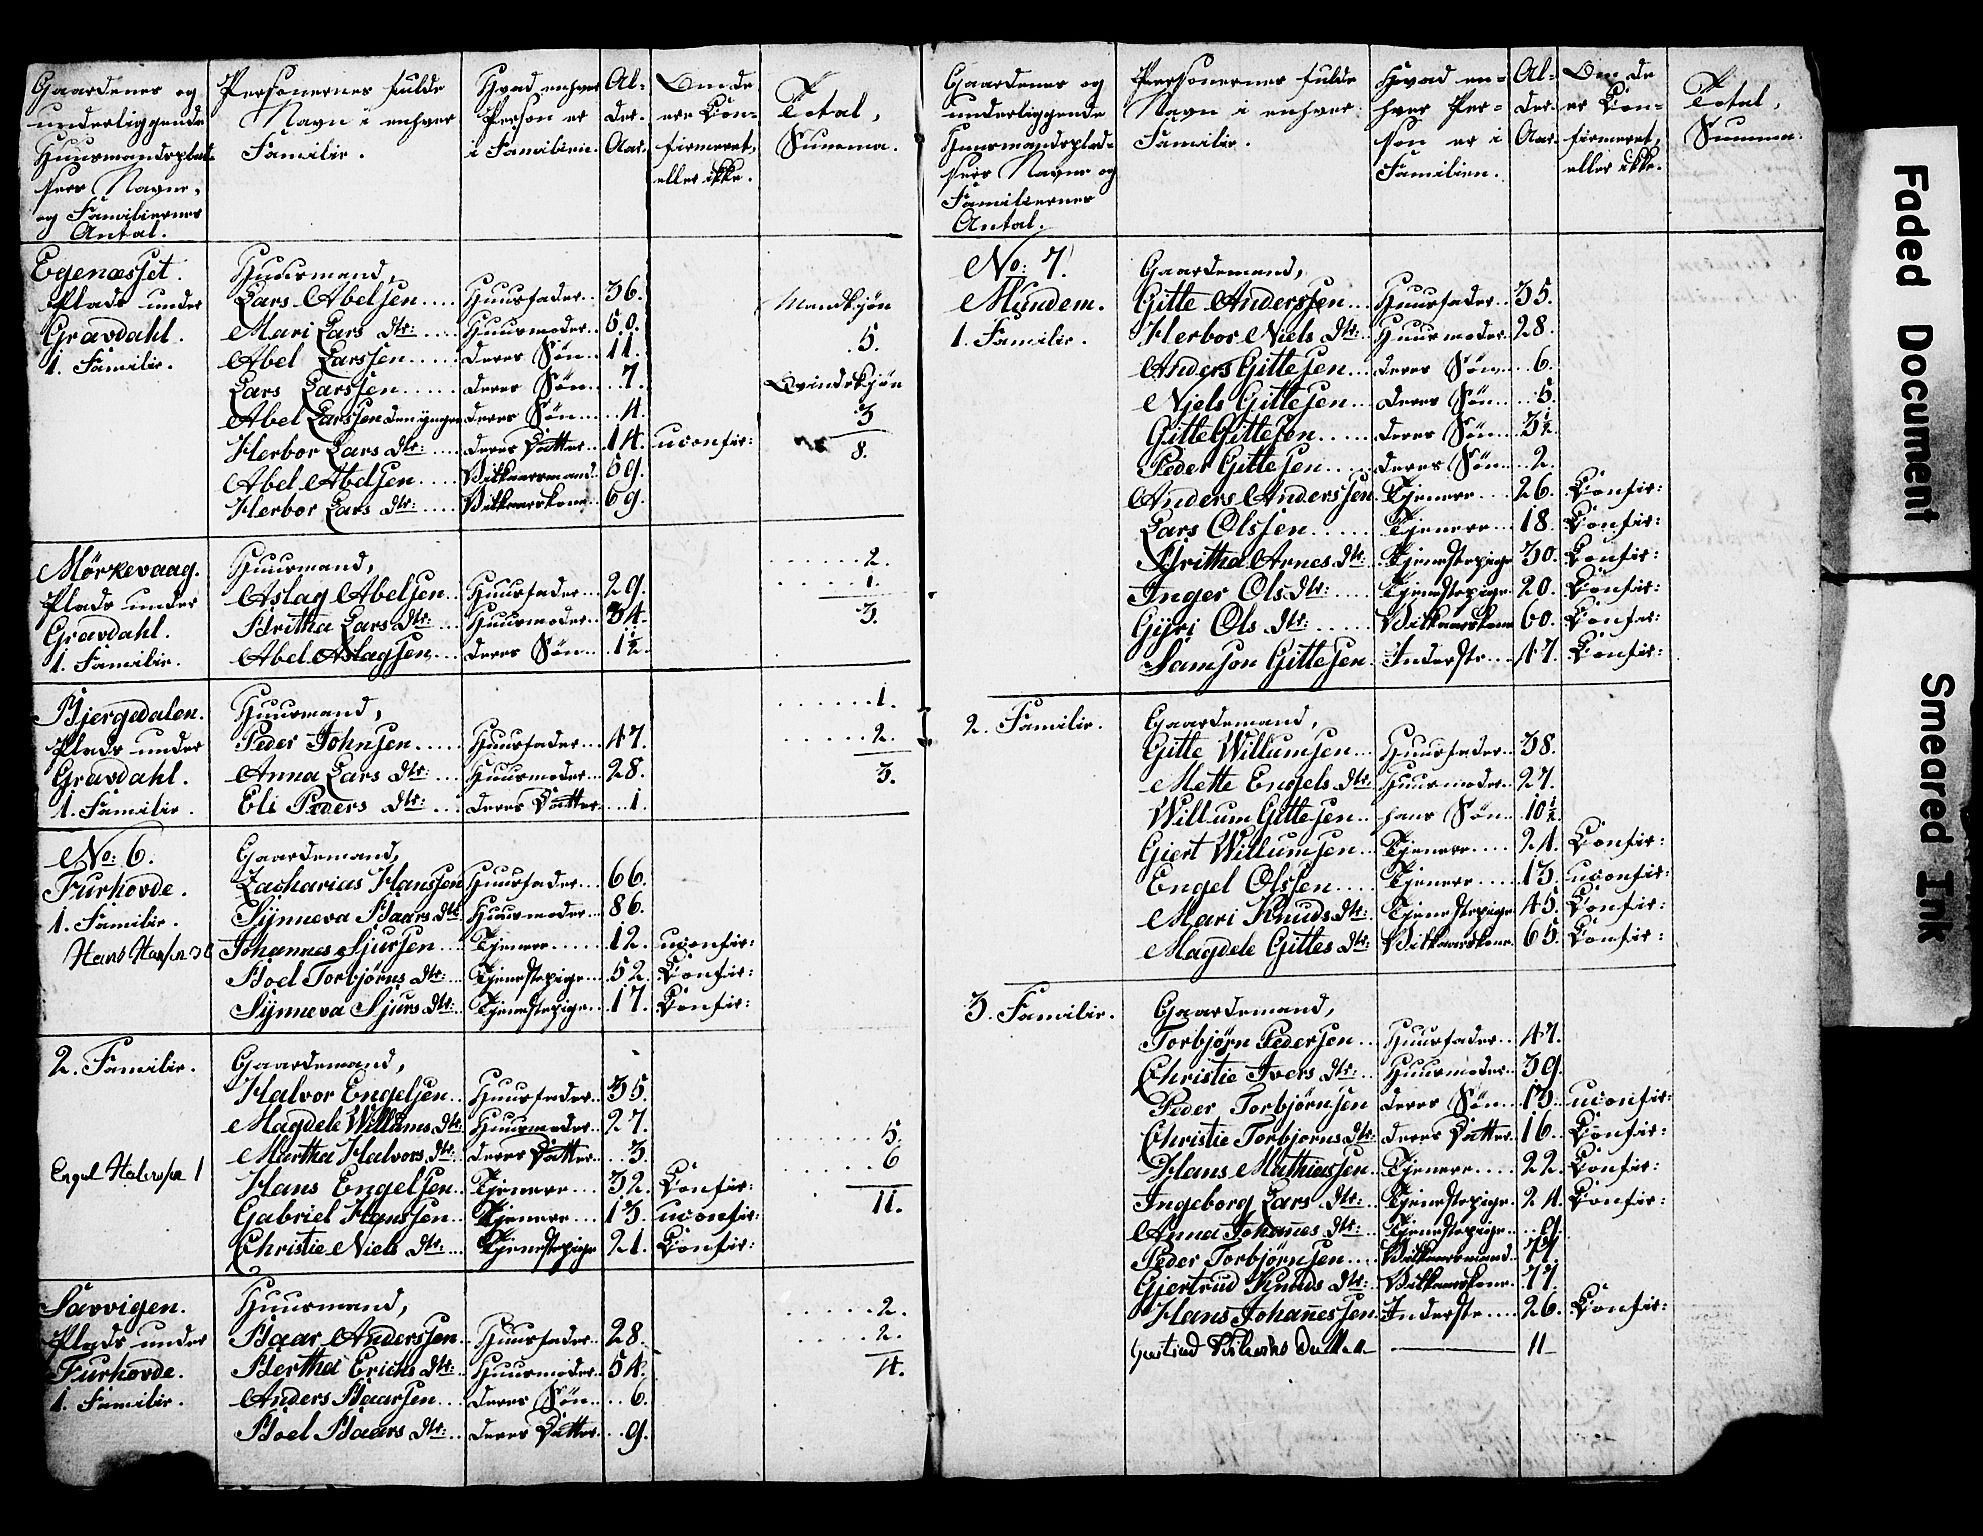 Gaardenes og
underliggende
Huusmandsplad-
sers Navne,
og Familiernes
Antal.
Personernes fulde
Navn i enhver
Familie.
Hvad enhver
Person er
i Familien.
Al-
der.
Aar.
Om de
ere Con-
firmeret,
eller ikke.
Total,
Summa.
Egenæsset.
Plads under
Gravdahl.
1. Familie.
Huusmand,
Lars Abelsen .... Huusfader .. 36.
Mari Lars Dtr: .... Huusmoder .. 50.
Abel Larssen ..... deres Søn ... 11.
Lars Larssen ...... deres Søn ... 7.
Abel Larssen den yngre deres Søn .... 4.
Herbor Lars Dtr: .... deres Datter .. 14. uconfir:
Abel Abelsen .... Vilkaarsmand. 69.
Herbor Lars Dtr: .... Vilkaarskone .. 69.
Mandkjøn
5.
Qvindekjøn
3
8.
Mörkevaag.
Plads under
Gravdahl.
1. Familie.
Huusmand,
Aslag Abelsen ... Huusfader .. 29.
Britha Lars Dtr: ... Huusmoder .. 34.
Abel Aslagsen .... deres Søn ... 1½.
...... 2.
...... 1.
3.
Bjergedalen.
Plads under
Gravdahl.
1. Familie.
Huusmand,
Peder Johnsen ..... Huusfader ... 47.
Anna Lars Dtr: .... Huusmoder .. 28.
Eli Peders Dtr: .... deres Datter .... 1.
...... 1.
...... 2.
3.
No: 6.
Furhovde.
1. Familie.
Hans Hansen 30
Gaardemand,
Zacharias Hanssen Huusfader ... 66.
Synneva Baars Dtr: Huusmoder .. 86.
Johannes Sjursen ... Tjenere ...... 12. uconfir:
Boel Torbjörns Dtr: .. Tjenestepige .. 52. Confir:
Synneva Sjurs Dtr: .. Tjenestepige .. 17. Confir:
2. Familie.
Engel Halvorsen 1
Gaardemand,
Halvor Engelsen ... Huusfader .. 35.
Magdele Willums Dtr: Huusmoder .. 27.
Martha Halvors Dtr: .. deres Datter ... 3.
Hans Engelsen .. Tjenere .... 32. Confir:
Gabriel Hanssen .. Tjenere .... 13. uconfir:
Christie Niels Dtr: .... Tjenestepige 21. Confir:
....... 5.
....... 6
11.
Sævvigen.
Plads under
Furhovde.
1. Familie.
Huusmand,
Baar Anderssen .. Huusfader .. 28.
Bertha Erichs Dtr: ... Huusmoder .. 54.
Anders Baarsen ... deres Søn .... 6.
Boel Baars Dtr: ... deres Datter ... 9.
...... 2.
...... 2.
4.
Gaardenes og
underliggende
Huusmandsplad-
sers Navne og
Familiernes
Antal.
Personernes fulde
Navn i enhver
Familie.
Hvad en-
hver Per-
son er i
Familien.
Al-
der.
Aar.
Om de
er Con-
firmeret,
eller ikke.
Total,
Summa.
No: 7.
Mundem.
1. Familie.
Gaardemand,
Gitle Anderssen ... Huusfader .. 35.
Herbor Niels Dtr: .. Huusmoder 28.
Anders Gittesen ... deres Søn .... 6.
Niels Gittesen .... deres Søn .... 5.
Gitte Gittesen ...... deres Søn .... 3½.
Peder Gittesen ..... deres Søn .... 2.
Anders Anderssen Tjenere .... 26. Confir:
Lars Olssen ...... Tjenere .... 18. Confir:
Britha Arnes Dtr: .. Tjenestepige 30. Confir:
Inger Ols Dtr: ..... Tjenestepige. 20. Confir:
Gjsri Ols Dtr: ...... Vilkaarskone 60. Confir:
Samson Gittesen. Inderste .... 47. Confir:
2. Familie.
Gaardemand,
Gitle Willumsen ... Huusfader .. 38.
Mette Engels Dtr: Huusmoder .. 27.
Willum Gittesen .. hans Søn .. 10½.
Giert Willumsen ... Tjenere ..... 21. Confir:
Engel Olssen ..... Tjenere ..... 13. uconfir:
Mari Knuds Dtr: .. Tjenestepige 45. Confir:
Magdele Gittes Dtr: Vilkaarskone 65. Confir:
3. Familie.
Gaardemand,
Torbjörn Pedersen ... Huusfader .. 47.
Christie Ivers Dtr: ... Huusmoder .. 39.
Peder Torbjörnsen deres Søn ... 13. uconfir:
Christie Torbjørns Dtr: deres Datter. 16. Confir:
Hans Mathiassen. Tjenere .... 22. Confir:
Ingeborg Lars Dtr: ... Tjenestepige. 24. Confir:
Anna Johañes Dtr: ... Tjenestepige ... 9.
Peder Torbjörnsen .... Vilkaarsmand .. 77.
Gjertrud Knuds Dtr: .. Vilkaarskone. 77.
Hans Johañessen. Inderste .... 26. Confir:
11
Faded Document
Smeared Ink